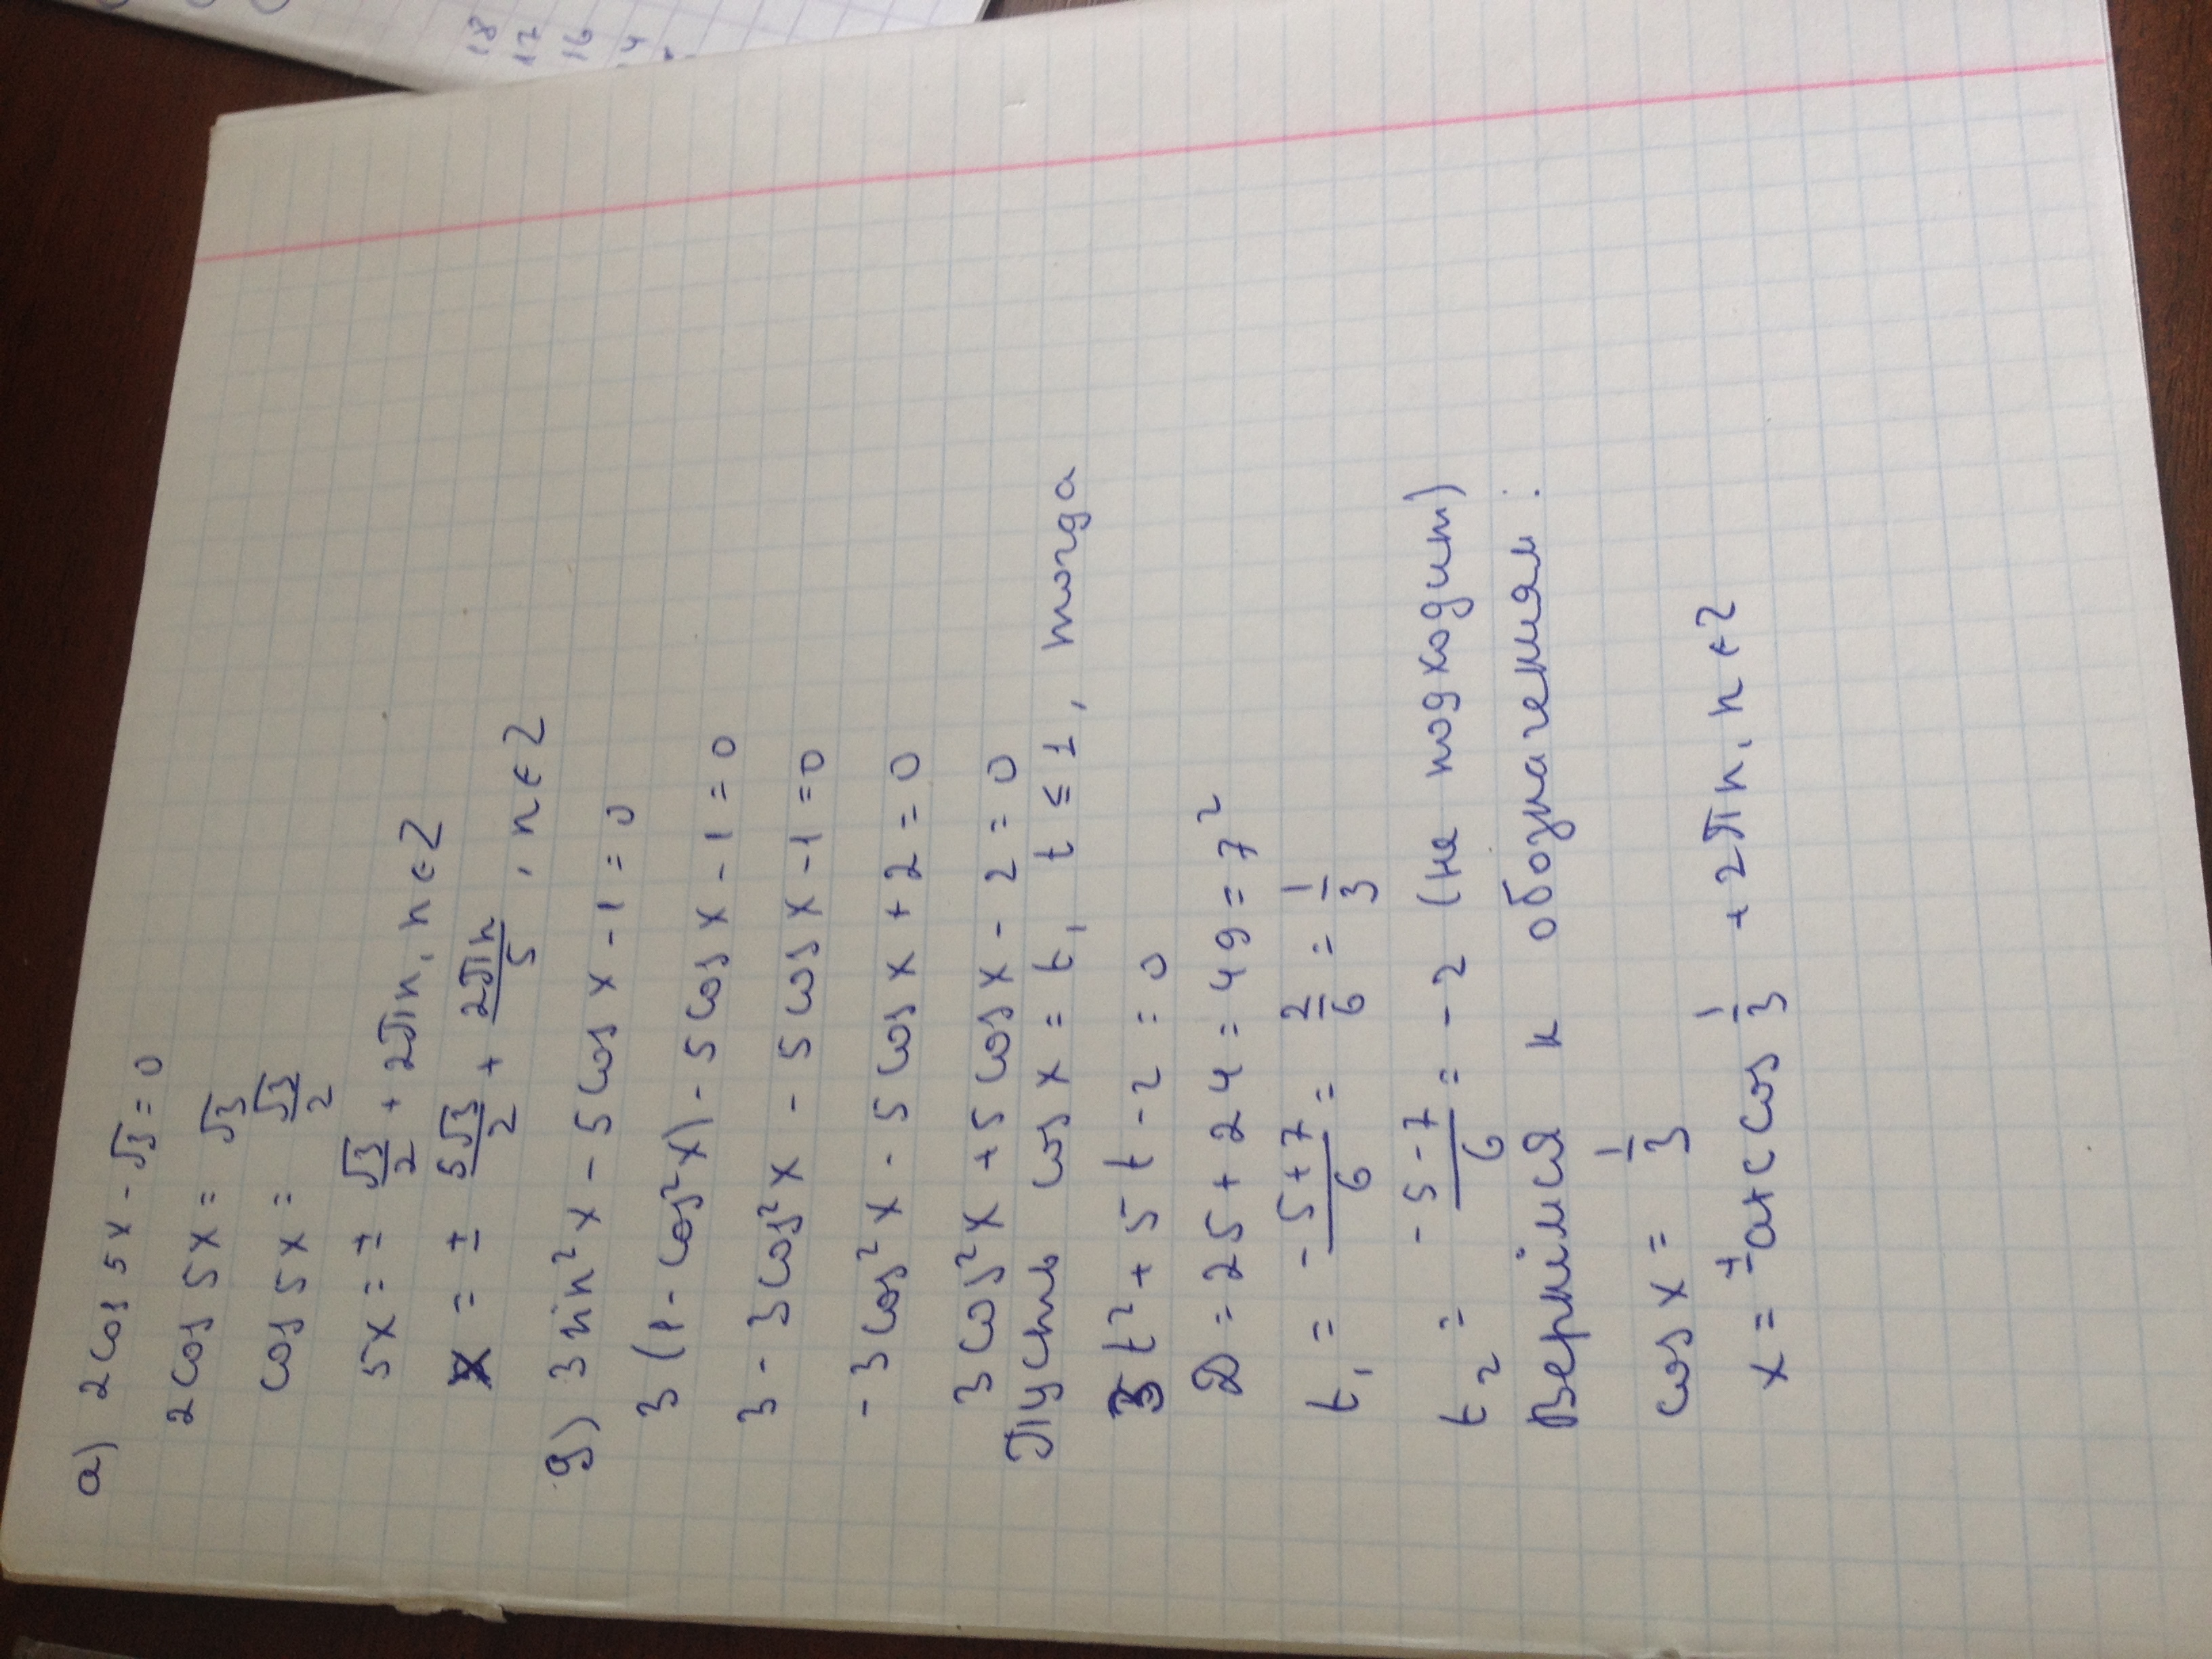 а) 2cos 5x - √3 = 0
2cos 5x = √3
cos 5x = √3/2
5x = ± √3/2 + 2πn, n ∈ Z
x = ± 5√3/2 + 2πn/5, n ∈ Z
д) 3 sin²x - 5cos x - 1 = 0
3(1 - cos²x) - 5cos x - 1 = 0
3 - 3cos²x - 5cos x - 1 = 0
- 3cos²x - 5cos x + 2 = 0
3cos²x + 5cos x - 2 = 0
Пусть cos x = t, t ≤ 1, тогда
3t² + 5t - 2 = 0
D = 25 + 24 = 49 = 7²
t₁ = -5+7/6 = 2/6 = 1/3
t₂ = -5-7/6 = -2 (не подходит)
Вернёмся к обозначениям:
cos x = 1/3
x = ± arccos 1/3 + 2πn, n ∈ Z
18
17
16